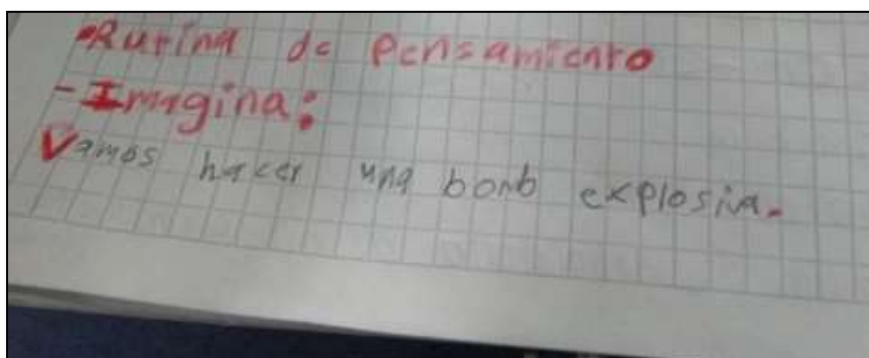 •Rutina de Pensamiento
- Imagina:
Vamos hacer una bomb explosiva.